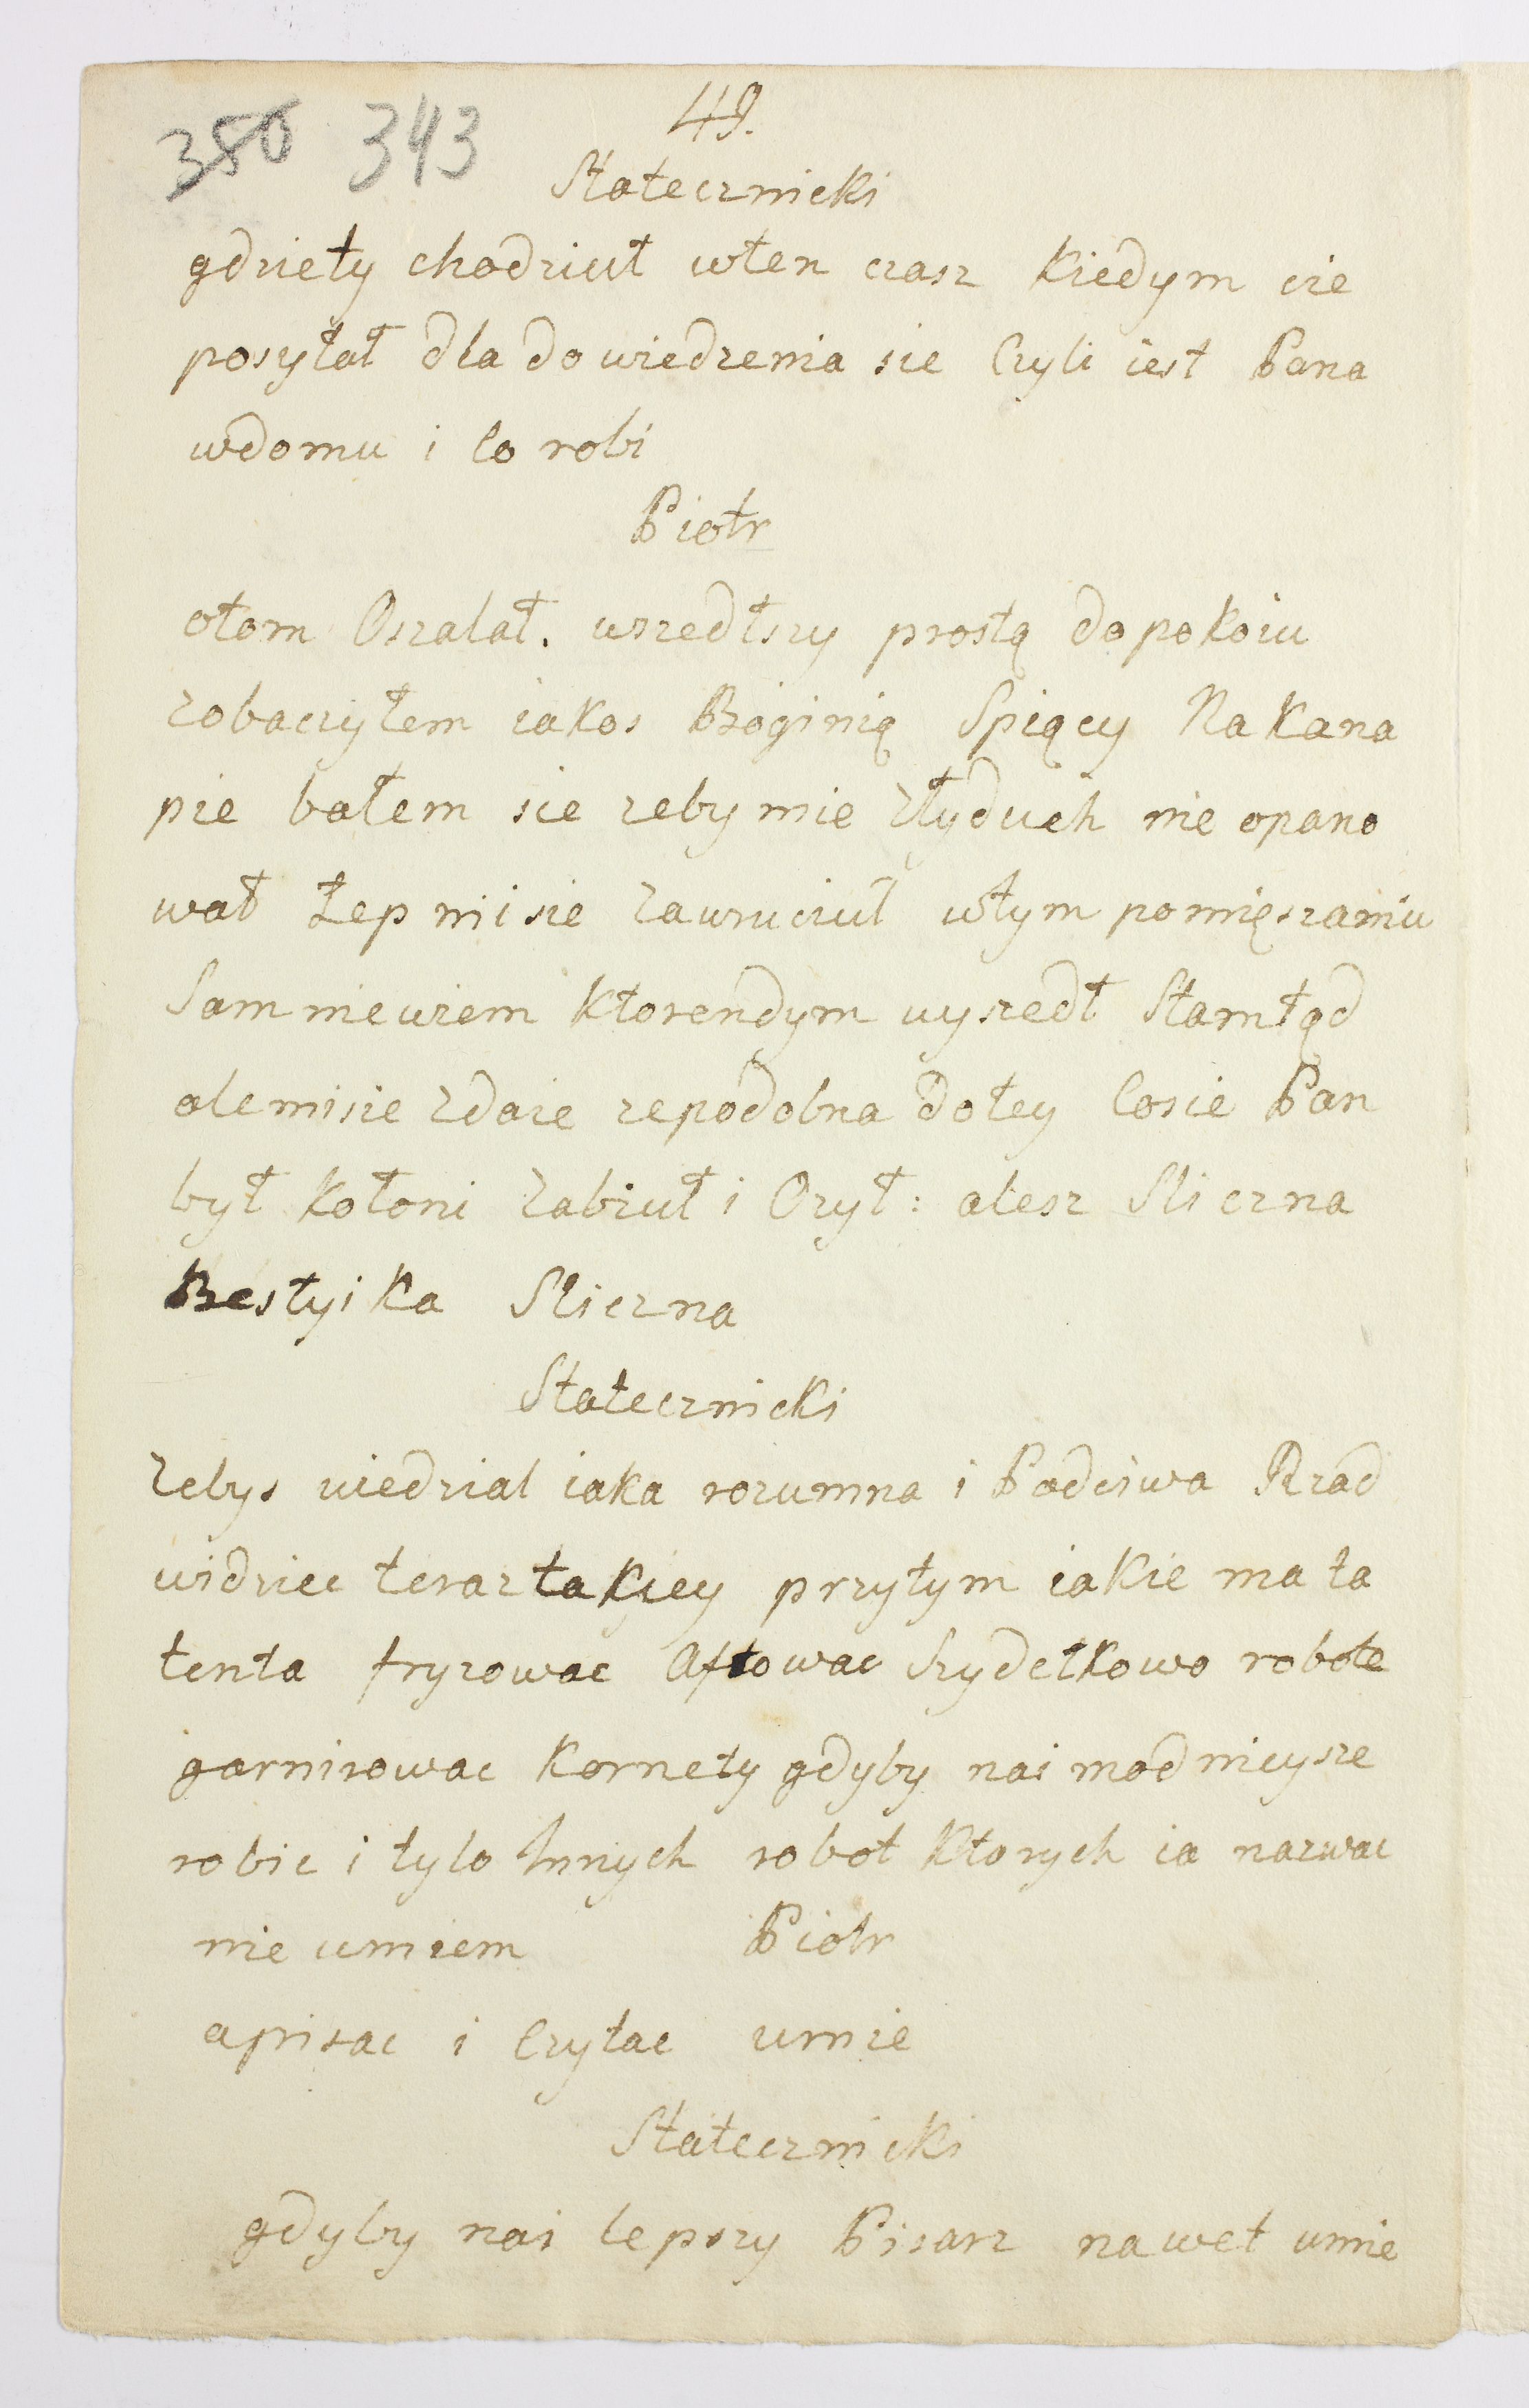 350 343 49.
Statecznicki
gdziety chodziuł wten czasz kiedym cie
posyłał dla dowiedzenia sie Czyli iest Pana
wdomu i Co robi
Piotr
otom Oszalał. wszedłszy prostą dopokoiu
zobaczyłem iakos Boginią Spiący Na Kana
pie bałem sie zeby mie złyduch nie opano
wał Łep mi sie zawruciuł wtym pomięszaniu
Sam niewiem ktorendym wyszedł Stamtąd
alemisie zdaie zepodobna dotey Cosie Pan
był kołoni zabiuł i Ozył: alesz Sliczna
Bestyika Sliczna
Statecznicki
zebys wiedzial iaka rozumna i Podciwa Rzad
widziec teraz takiey przytym iakie ma ta
lenta fryzowac Aftowac Szydełkowo robote
garnirowac Kornety gdyby nai modnieysze
robic i tylo Innych robot ktorych ia nazwac
nie umiem Piotr
apisac i Czytac umie
Statecznicki
gdyby nai lepszy Pisarz nawet umie